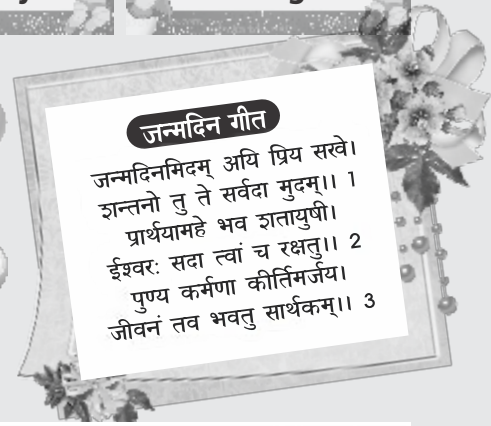 जन्मदिन गीत
जन्मदिनमिदम् अयि प्रिय सखे।
शन्तनो तु ते सर्वदा मुदम्।। 1
प्रार्थयामहे भव शतायुषी।
ईश्वरः सदा त्वां च रक्षतु।। 2
पुण्य कर्मणा कीर्तिमर्जय।
जीवनं तव भवतु सार्थकम्।। 3